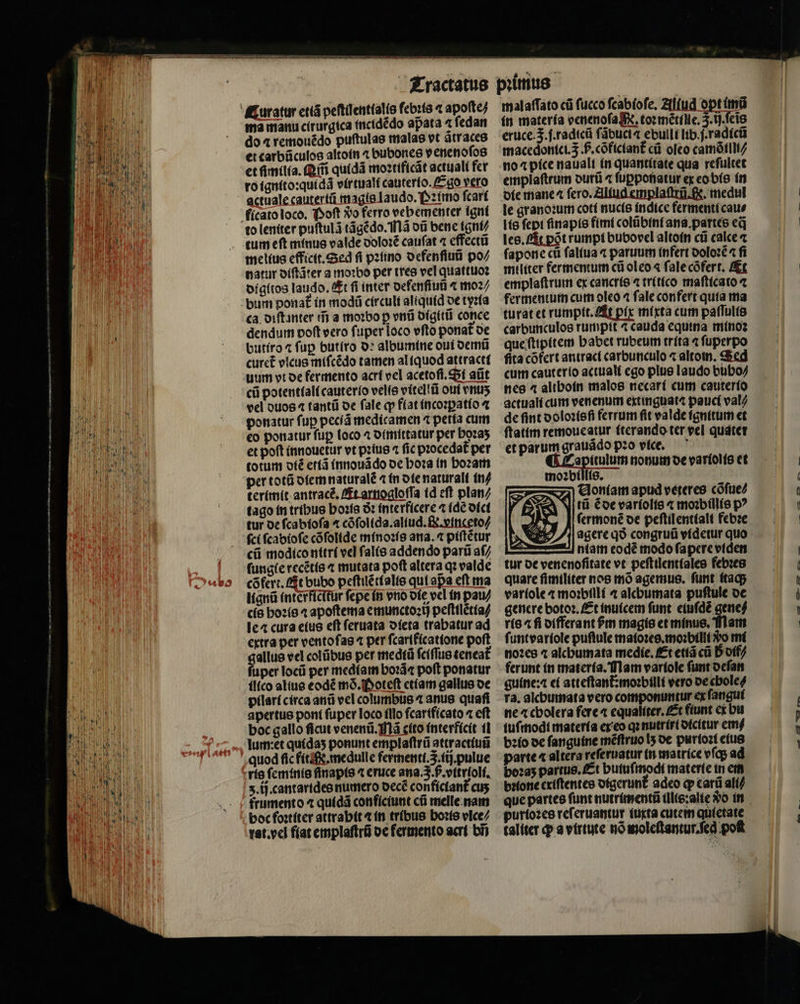 Tractatus primus
Curatur etiã pestilentialis febris ⁊ aposte⸗
ma manu cirurgica incidẽdo aꝑata ⁊ sedan
do ⁊ remouẽdo pustulas malas vt ãtraces
et carbũculos altoin ⁊ bubones venenosos
et similia. Qm̃ quidã mortificãt actuali fer
ro ignito:quidã virtuali cauterio. Ego vero
actuale cauteriũ magis laudo. Primo scari
ficato loco. Post ṽo ferro vehementer igni
to leniter pustulã tãgẽdo. Nã dũ bene igni⸗
tum est minus valde dolorẽ causat ⁊ effectũ
melius efficit. Sed si primo defensiuũ po⸗
natur distãter a morbo per tres vel quattuor
digitos laudo. Et si inter defensiuũ ⁊ mor⸗
bum ponat̃ in modũ circuli aliquid de tyria
ca distanter m̃ a morbo ꝑ vnũ digitũ conce
dendum post vero super loco vsto ponat̃ de
butiro ⁊ suꝑ butiro d: albumine oui demũ
curet̃ vlcus miscẽdo tamen aliquod attracti
uum vt de fermento acri vel acetosi. Si aũt
cũ potentiali cauterio velis vitellũ oui vnus
vel duos ⁊ tantũ de sale ꝙ fiat incorꝑatio ⁊
ponatur suꝑ peciã medicamen ⁊ petia cum
eo ponatur suꝑ loco ⁊ dimittatur per horaʒ
et post innouetur vt prius ⁊ sic procedat̃ per
totum diẽ etiã innouãdo de hora in horam
per totũ diem naturalẽ ⁊ in die naturali in⸗
terimit antracẽ. Et arnoglossa id est plan⸗
tago in tribus horis d̃: interficere ⁊ idẽ dici
tur de scabiosa ⁊ cõsolida. aliud. ℞. vinceto⸗
sci scabiose cõsolide minoris ana. ⁊ pistẽtur
cũ modico nitri vel salis addendo parũ as⸗
sungie recẽtis ⁊ mutata post altera qꝛ valde
cõfert. Et bubo pestilẽtialis qui aꝑa est ma
lignũ interficitur sepe in vno die vel in pau⸗
cis horis ⁊ apostema emunctorij pestilẽtia⸗
le ⁊ cura eius est seruata dieta trahatur ad
extra per ventosas ⁊ per scarificatione post
gallus vel colũbus per mediũ scissus teneat̃
super locũ per mediam horã ⁊ post ponatur
illico alius eodẽ mõ. Potest etiam gallus de
pilari circa anũ vel columbus ⁊ anus quasi
apertus poni super loco illo scarificato ⁊ est
hoc gallo sicut venenũ. Nã cito interficit il
lum:et quidaʒ ponunt emplastrũ attractiuũ
quod sic fit. ℞. medulle fermenti. ʒ. iij. pulue
ris seminis sinapis ⁊ eruce ana. ʒ. ß. vitrioli.
ʒ. ij. cantarides numero decẽ conficiant̃ cuʒ
frumento ⁊ quidã conficiunt cũ melle nam
hoc fortiter attrahit ⁊ in tribus horis vice⸗
rat. vel fiat emplastrũ de fermento acri bñ
malassato cũ succo scabiose. Aliud optimũ
in materia venenosa ℞. tormẽtille. ʒ. ij. seĩs
eruce. ʒ. j. radicũ sãbuci ⁊ ebulli lib. j. radicũ
macedonici. ʒ. ß. cõficiant̃ cũ oleo camõilli⸗
no ⁊ pice nauali in quantitate qua resultet
emplastrum durũ ⁊ supponatur ex eo bis in
die mane ⁊ sero. Aliud emplastrũ. ℞. medul
le granorum coti nucis indice fermenti cau⸗
lis sepi sinapis fimi colũbini ana. partes eq̃
les. Et põt rumpi bubo vel altoin cũ calce ⁊
sapone cũ saliua ⁊ paruum infert dolorẽ ⁊ si
militer fermentum cũ oleo ⁊ sale cõfert. Et
emplastrum ex cancris ⁊ tritico masticato ⁊
fermentum cum oleo ⁊ sale confert quia ma
turat et rumpit. Et pix mixta cum passulis
carbunculos rumpit ⁊ cauda equina minor
que stipitem habet rubeum trita ⁊ superpo
sita cõfert antraci carbunculo ⁊ altoin. Sed
cum cauterio actuali ego plus laudo bubo⸗
nes ⁊ althoin malos necari cum cauterio
actuali cum venenum extinguat ⁊ pauci val⸗
de sint dolores si ferrum sit valde ignitum et
statim remoueatur iterando ter vel quater
et parum grauãdo pro vice.
¶ Capitulum nonum de variolis et
morbillis.
Qoniam apud veteres cõsue⸗
tũ ẽ de variolis ⁊ morbillis pꝰ
sermonẽ de pestilentiali febre
agere qd̃ congruũ videtur quo
niam eodẽ modo sapere viden
tur de venenositate vt pestilentiales febres
quare similiter nos mõ agemus. sunt itaqꝫ
variole ⁊ morbilli ⁊ alchumata pustule de
genere botor. Et inuicem sunt eiusdẽ gene⸗
ris ⁊ si differant ẜm magis et minus. Nam
sunt variole pustule maiores. morbilli ṽo mi
nores ⁊ alchumata medie. Et etiã cũ ɧ dif⸗
ferunt in materia. Nam variole sunt de san
guine:⁊ ei attestant̃: morbilli vero de chole⸗
ra. alchumata vero componuntur ex sangui
ne ⁊ cholera fere ⁊ equaliter. Et fiunt ex hu
iusmodi materia ex eo qꝛ nutriri dicitur em⸗
brio de sanguine mẽstruo lʒ de puriori eius
parte ⁊ altera reseruatur in matrice vsqꝫ ad
horaʒ partus. Et huiusmodi materie in em
brione existentes digerunt̃ adeo ꝙ earũ ali⸗
que partes sunt nutrimentũ illis:alie ṽo in
puriores reseruantur iuxta cutem quietate
taliter ꝙ a virtute nõ molestantur. sed post
Bubo